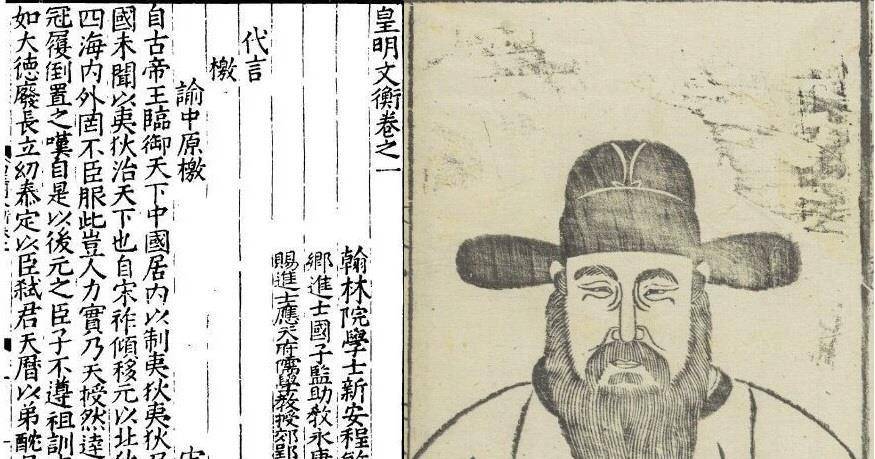 皇明文衡卷之一
翰林院學士新安程
鄉進士國子監助教永康
賜進士應天府儒學教授
代言
檄
諭中原檄
自古帝王臨御天下中國居内以制夷狄夷狄
國未聞以夷狄治天下也自宋祚傾移元以北
四海内外罔不臣服此豈人力實乃天授然達
冠履倒置之嘆自是以後元之臣子不遵祖訓
如大德廢長立幼泰定以臣弑君天曆以弟酖